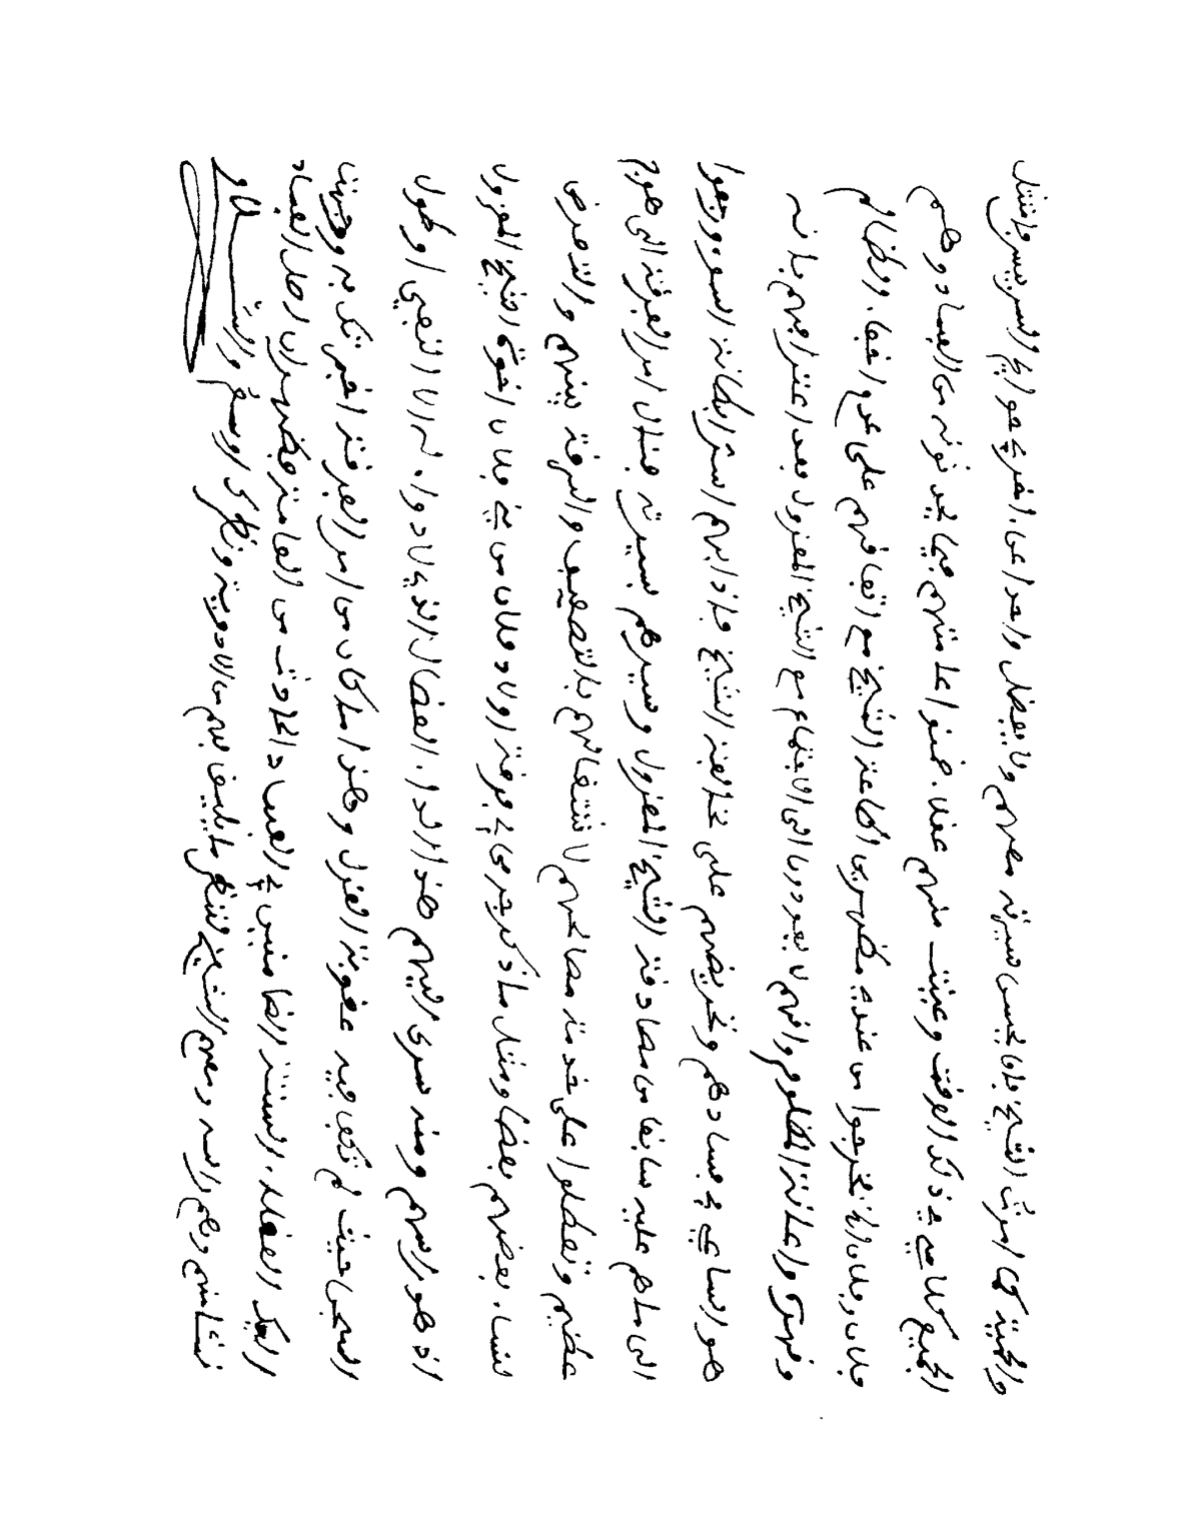 والحمية كما امرتك الشيخ بان يحسن سيرته معهم ولا يفضل واحدا عن اخر في حوايج السر يسر وامتثل
الجميع كلامي في ذلك الوقت وعينت منهم عقلا ضمنوا علمتهم فيما يحدثونه من الفساد وهم
فلان وفلان ان يخرجوا من عنده مظهرين الطاعة للشيخ مع اتفاقهم على عدم اخفا والظالم
وقهره واعانة المظلوم وانهم لا يعودون الى الاجتماع مع الشيخ المعزول بعد اعترافهم بانه
هو الساعي في فسادهم وتحريضهم على مخالفة الشيخ فاذا بهم اسثر ابطانة السوء ورجعوا
الى ما هم عليه سابقا من مصادقة الشيخ المعزول وسيرهم بسيرته فنال امر الفرقة الى هرج
عظيم وتعطلوا على خدمة مصالحهم لاشتغالهم بالتصفيف والسرقة بينهم والتعرض
لنسا بعضهم بعضا ومثل ما ذكر جرى في فرقة اولاد فلان من فلان اخوة الشيخ المعزول
اذ هو راسهم ومنه سرى اليهم هذا الدا العضال الذي لا دوا له الا النفي او طول
السجن حيث لم تكف فيه عقوبة العزل وهذا ما كان من امر الفرقة اخبرتك به وجهت
اليك العقلا الستة الضامنين في الفساد الحادث من العامة فظهر ان اهل الفساد
نشا منهم وهم راسه ومعهم الشيخ لتنظر ما يليق بهم من الادوية ونظرك اوسع والسلام